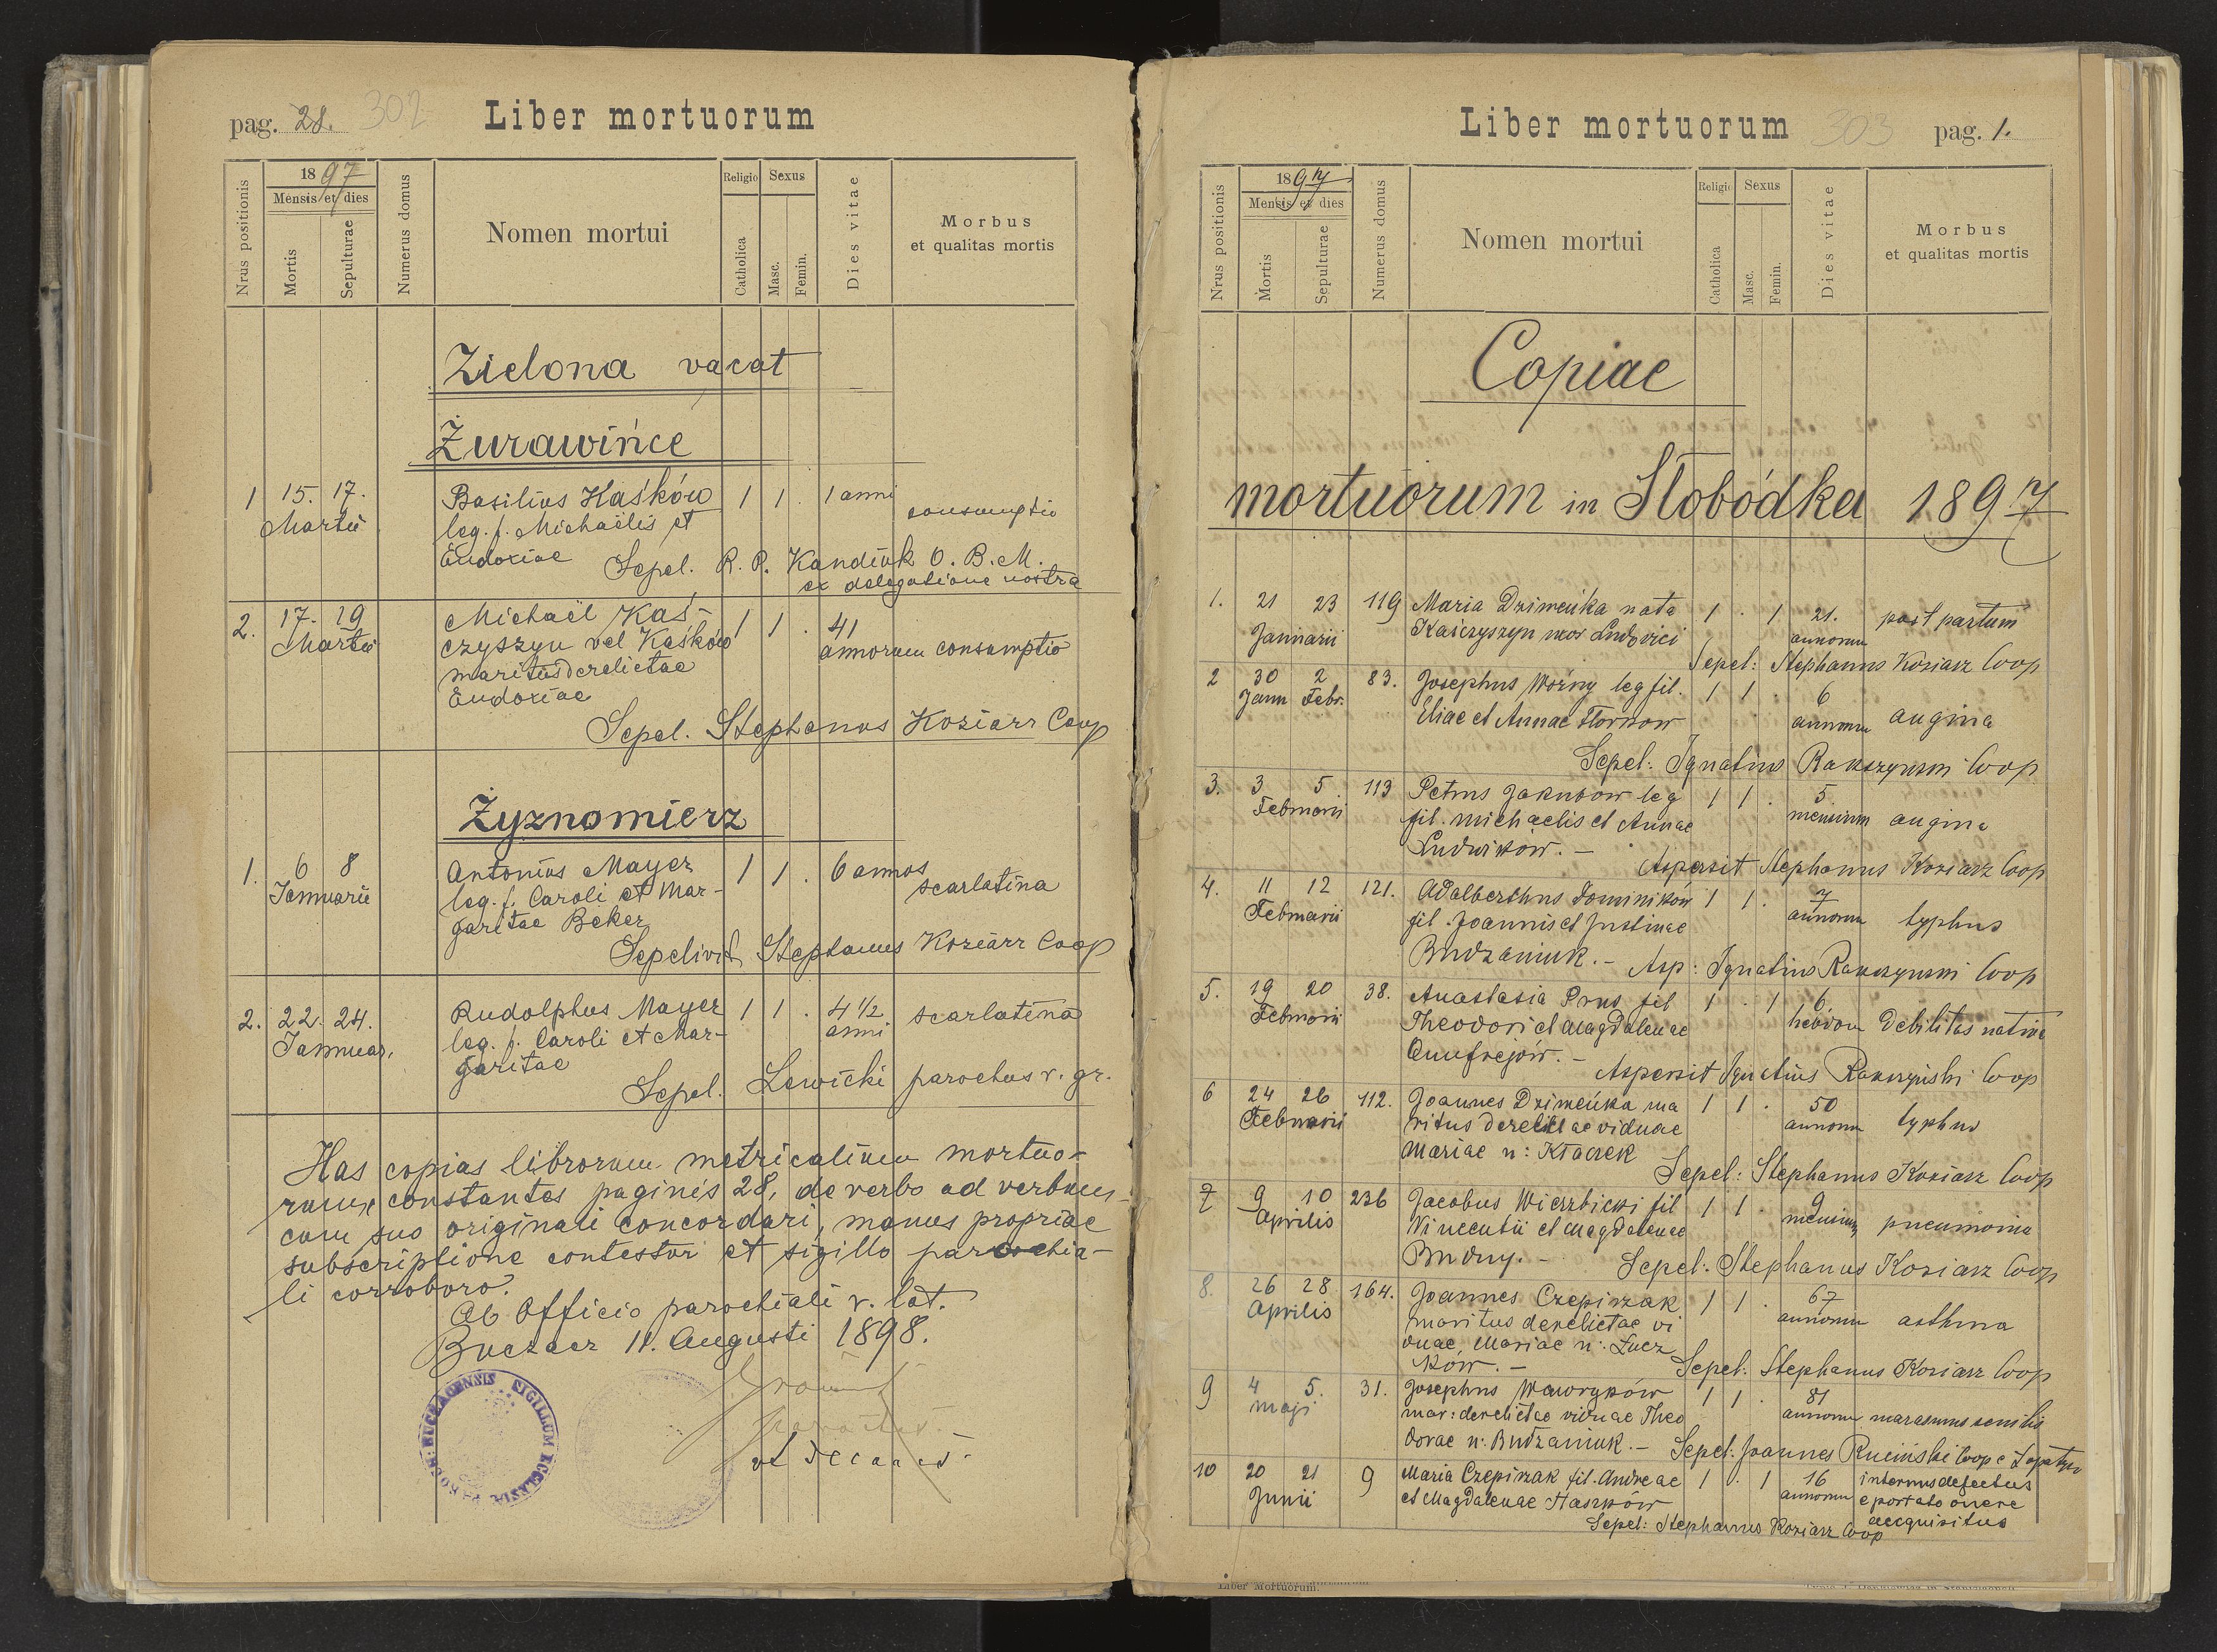 pag. 28. 302 Liber mortuorum
Nrus positionis
1897
Mensis et dies
Mortis
Sepulturae
Numerus domus
Nomen mortui
Religio
Catholica
Sexus
Masc.
Femin.
Dies vitae
Morbus
et qualitas mortis
Zielona vacat
Żurawińce
1 15. 17. Basilius Kaśków 1 1 . 1 anni
Martii leg. f. Michaëlis et consumptio
Eudoxiae Sepel. R. P. Kandiuk O. B. M.
ex delegatione nostra
2. 17. 19 Michaël Kaś- 1 1 . 41
Martii czyszyn vel Kaśków annorum consumptio
maritus derelictae
Eudoxiae
Sepel. Stephanus Koziarz Coop
Żyznomierz
1. 6 8 Antonius Mayer 1 1 . 6 annos
Januarii leg. f. Caroli et Mar- scarlatina
garitae Beker
Sepelivit Stephanus Koziarz Coop
2. 22. 24. Rudolphus Mayer 1 1 . 4 1/2 scarlatina
Januar. leg. f. Caroli et Mar- anni
garitae
Sepel. Lewicki parochus r. gr.
Has copias librorum metricalium mortuo-
rum, constantes paginis 28, de verbo ad verbum
cum suo originali concordari, manus propriae
subscriptione contestor et sigillo parochia-
li corroboro.
Ab Officio parochiali r. lat.
Buczacz 11. Augusti 1898.
parochus
et decanus
SIGILLUM ECLESIAE PAROCH: BUCZACENSIS
Liber mortuorum 303 pag. 1.
Nrus positionis
1897
Mensis et dies
Mortis
Sepulturae
Numerus domus
Nomen mortui
Religio
Catholica
Sexus
Masc.
Femin.
Dies vitae
Morbus
et qualitas mortis
Copiae
mortuorum in Słobódka 1897
1. 21 23 119 Maria Dzimeńka nata 1 . 1 21. post partum
Januarii Kaśczyszyn uxor Ludovici annorum
Sepel: Stephanus Koziarz Coop
2 30 2 83. Josephus Woźny leg fil. 1 1 . 6
Janu Febr. Eliae et Annae annorum angina
Sepel: Ignatius Coop
3. 3 5 113 Petrus Jakubów leg 1 1 . 5
Februarii fil. Michaelis et Annae mensium angina
Ludwików. -
Aspersit Stephanus Koziarz Coop
4. 11 12 121. Adalberthus Dominików 1 1 . 7
Februarii fil. Joannis et Justinae annorum typhus
Budzaniuk. - Asp: Ignatius Coop
5. 19 20 38. Anastasia Prus fil 1 . 1 6
Februarii Theodori et Magdalenae hebdom debilitas nativa
Onufrejów. -
Aspersit Ignatius Coop
6 24 26 112. Joannes Dzimeńka ma 1 1 . 50
Februarii ritus derelictae viduae annorum typhus
Mariae n: Kłaczek
Sepel: Stephanus Koziarz Coop
7 9 10 236 Jacobus Wierzbicki fil 1 1 . 9
Aprilis Vincentii et Magdalenae mensium pneumonia
Budny. - Sepel: Stephanus Koziarz Coop
8. 26 28 164. Joannes Czepirzak 1 1 . 67
Aprilis maritus derelictae vi annorum asthma
duae, Mariae n:
ków. - Sepel: Stephanus Koziarz Coop
9 4 5. 31. Josephus Waworyków 1 1 . 81
Maji mar: derelictae viduae Theo annorum marasmus senilis
dorae n: Budzaniuk. - Sepel: Joannes Ruciński Coop
10 20 21 9 Maria Czepirzak fil. Andreae 1 . 1 16 internus defectus
Junii et Magdalenae Haszków annorum e portato onere
acequisitus
Sepel: Stephanus Koziarz Coop
Liber Mortuorum.